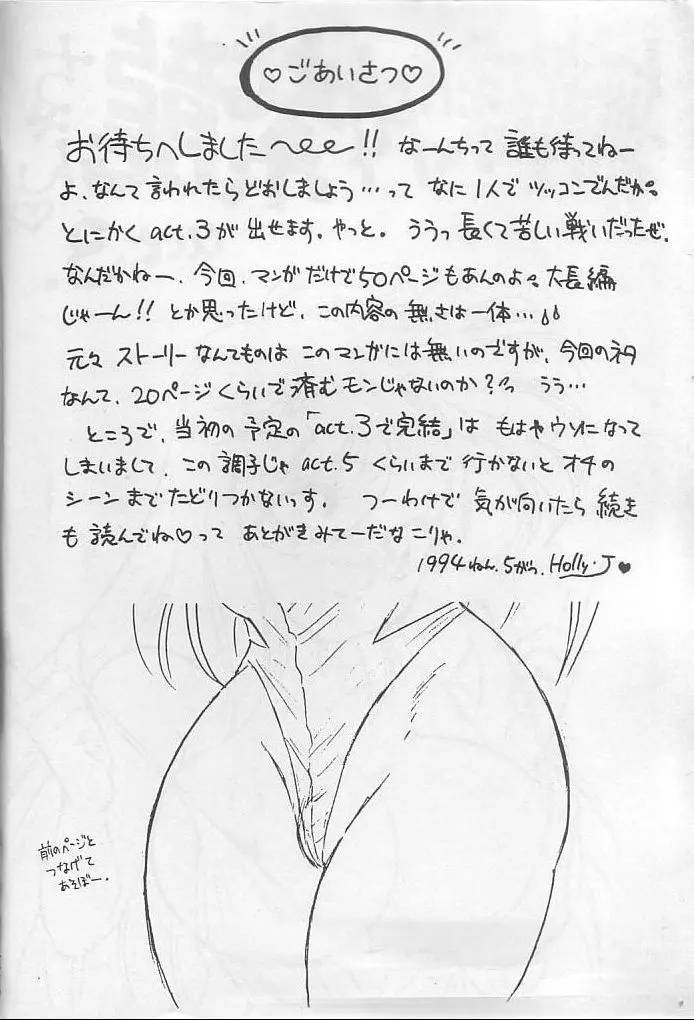 ♡ごあいさつ♡
お待ちへしました〜ee!! なーんちって 誰も待ってねー
よ、なんて言われたらどおしましょう…って なに1人で ツッコンでんだか。
とにかく act.3が 出せます。やっと。 ううっ 長くて苦しい戦いだったぜ。
なんだかねー、今回、マンガだけで50ページもあんのよ。大長編
じゃーん!! とか思ったけど、この内容の無さは一体…
元々 ストーリーなんてものは このマンガには無いのですが、今回のネタ
なんて、20ページくらいで済むモンじゃないのか?っっ うう…
ところで、当初の予定の「act.3で完結」は もはやウソになって
しまいまして、この調子じゃ act.5 くらいまで行かないと オチの
シーンまでたどりつかないっす。 つーわけで 気が向いたら 続き
も 読んでね♡って あとがきみてーだなこりゃ。
1994ねん.5がつ. Holly・J♥
前のページと
つなげて
あそぼー.